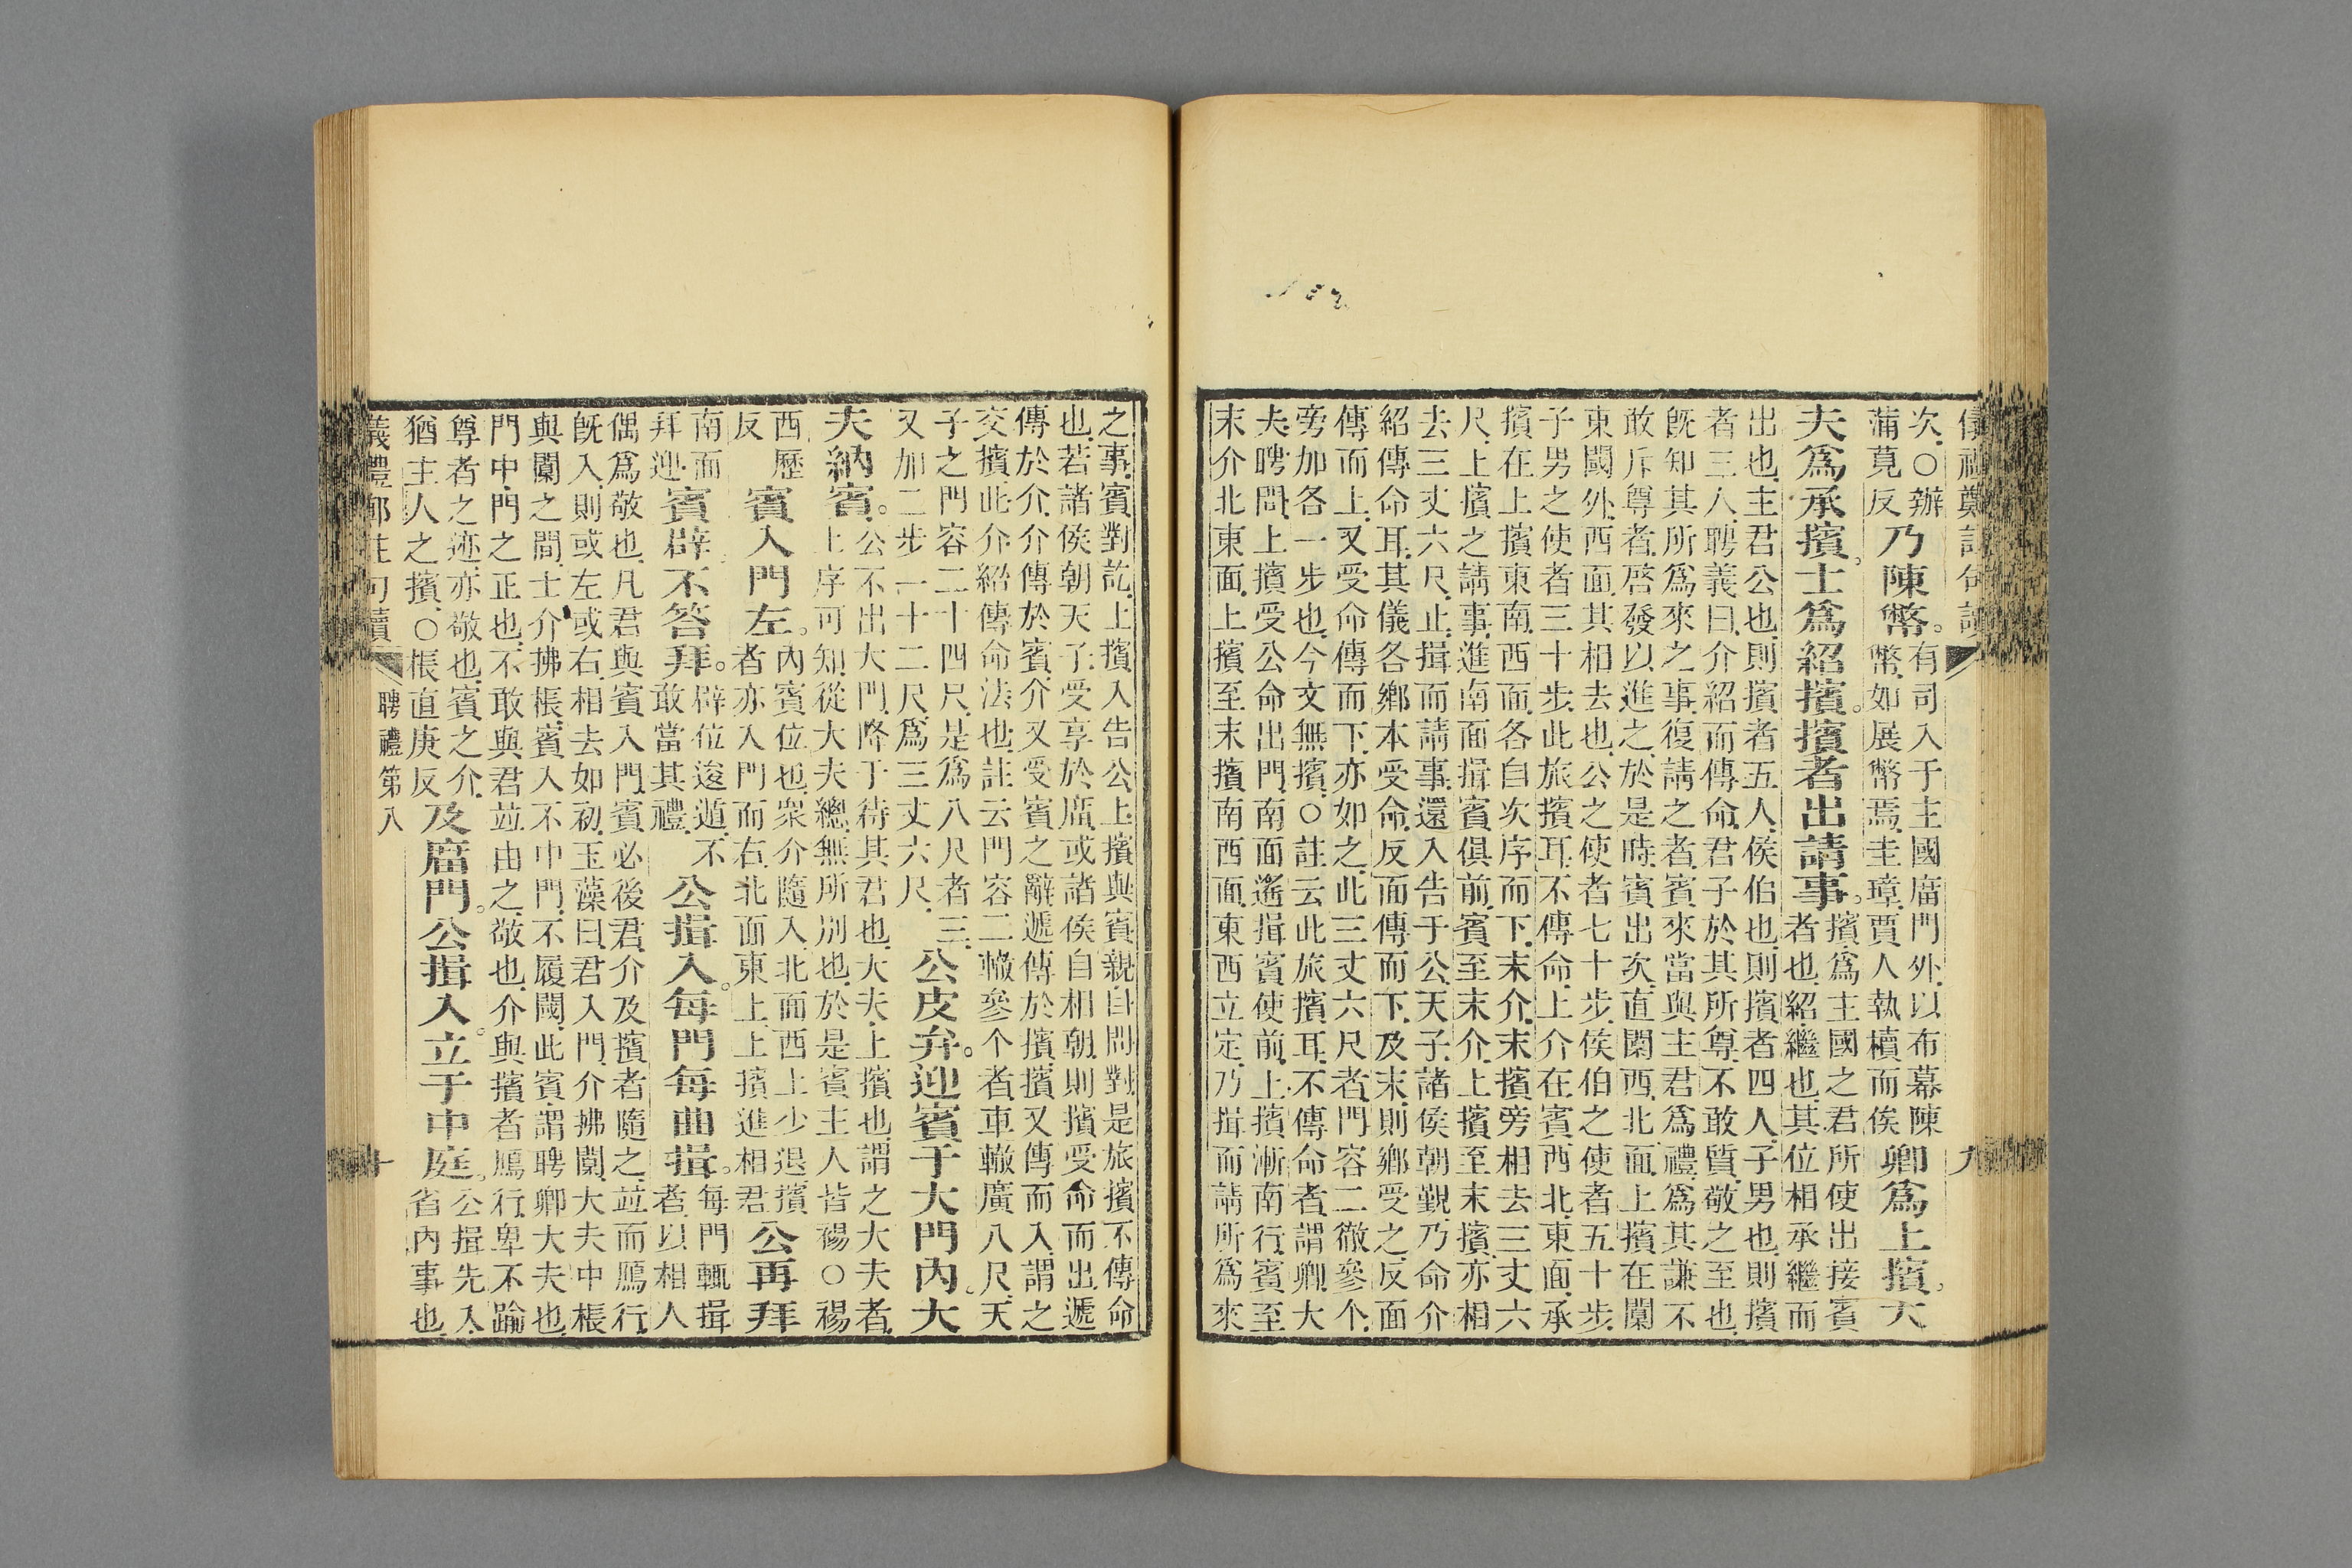 儀禮鄭註句讀 九
次○辦
蒲莧反
乃陳幣。
有司入于主國廟門外以布幕陳
幣如展幣焉圭璋賈人執櫝而俟
卿爲上擯。大
夫爲承擯。士爲紹擯。擯者出請事。
擯爲主國之君所使出接賓
者也紹繼也其位相承繼而
出也主君公也則擯者五人侯伯也則擯者四人子男也則擯
者三人聘義曰介紹而傳命君子於其所尊不敢質敬之至也
既知其所爲來之事復請之者賓來當與主君爲禮爲其謙不
敢斥尊者啓發以進之於是時賓出次直闑西北面上擯在闑
東閾外西面其相去也公之使者七十步侯伯之使者五十步
子男之使者三十步此旅擯耳不傳命上介在賓西北東面承
擯在上擯東南西面各自次序而下末介末擯旁相去三丈六
尺上擯之請事進南面揖賓俱前賓至末介上擯至末擯亦相
去三丈六尺止揖而請事還入告于公天子諸侯朝覲乃命介
紹傳命耳其儀各鄉本受命反面傳而下及末則鄉受之反面
傳而上又受命傳而下亦如之此三丈六尺者門容二徹參个
旁加各一步也今文無擯○註云此旅擯耳不傳命者謂卿大
夫聘問上擯受公命出門南面遙揖賓使前上擯漸南行賓至
末介北東面上擯至末擯南西面東西立定乃揖而請所爲來
之事賓對訖上擯入告公上擯與賓親自問對是旅擯不傳命
也若諸侯朝天子受享於廟或諸侯自相朝則擯受命而出遞
傳於介介傳於賓介又受賓之辭遞傳於擯擯又傳而入謂之
交擯此介紹傳命法也註云門容二轍參个者車轍廣八尺天
子之門容二十四尺是爲八尺者三
又加二步一十二尺爲三丈六尺
公皮弁。迎賓于大門內。大
夫納賓。
公不出大門降于待其君也大夫上擯也謂之大夫者
上序可知從大夫總無所別也於是賓主人皆裼○裼
西歷
反
賓入門左。
內賓位也衆介隨入北面西上少退擯
者亦入門而右北面東上上擯進相君
公再拜
南面
拜迎
賓辟不答拜。
辟位逡遁不
敢當其禮
公揖入。每門每曲揖。
每門輒揖
者以相人
偶爲敬也凡君與賓入門賓必後君介及擯者隨之竝而鴈行
既入則或左或右相去如初玉藻曰君入門介拂闑大夫中棖
與闑之間士介拂棖賓入不中門不履閾此賓謂聘卿大夫也
門中門之正也不敢與君竝由之敬也介與擯者鴈行卑不踰
尊者之迹亦敬也賓之介
猶主人之擯○棖直庚反
及廟門。公揖入。立于中庭。
公揖先入
省內事也
儀禮鄭註句讀 聘禮第八 十